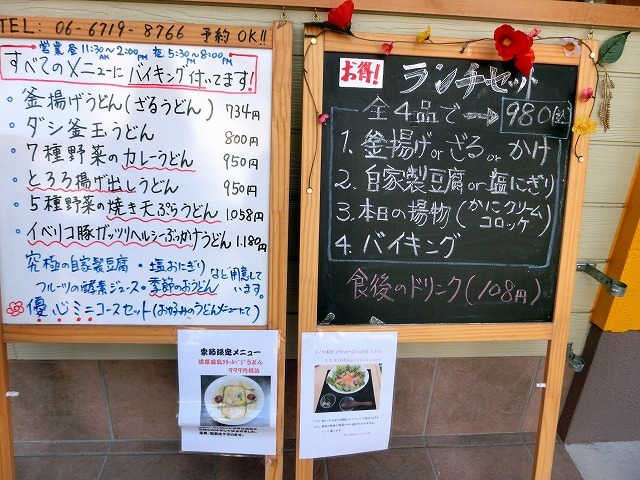 TEL: 06-6719-8766 予約OK!!
営業 昼11:30AM~2:00PM 夜5:30PM~8:00PM
すべてのメニューにバイキング付いてます!
・釜揚げうどん(ざるうどん) 734円
・ダシ釜玉うどん 800円
・7種野菜のカレーうどん 950円
・とろろ揚げ出しうどん 950円
・5種野菜の焼き天ぷらうどん 1058円
・イベリコ豚ガッツリヘルシーぶっかけうどん 1.180円
究極の自家製豆腐・塩おにぎり
フルーツの酵素ジュース・季節のおうどん
など用意しています。
優心ミニコースセット(お好みのうどんメニューにて)
お得!
ランチセット
全4品で→980円
1. 釜揚げorざるorかけ
2. 自家製豆腐or塩にぎり
3. 本日の揚物(かにクリームコロッケ)
4. バイキング
食後のドリンク(108円)
季節限定メニュー
999円税込